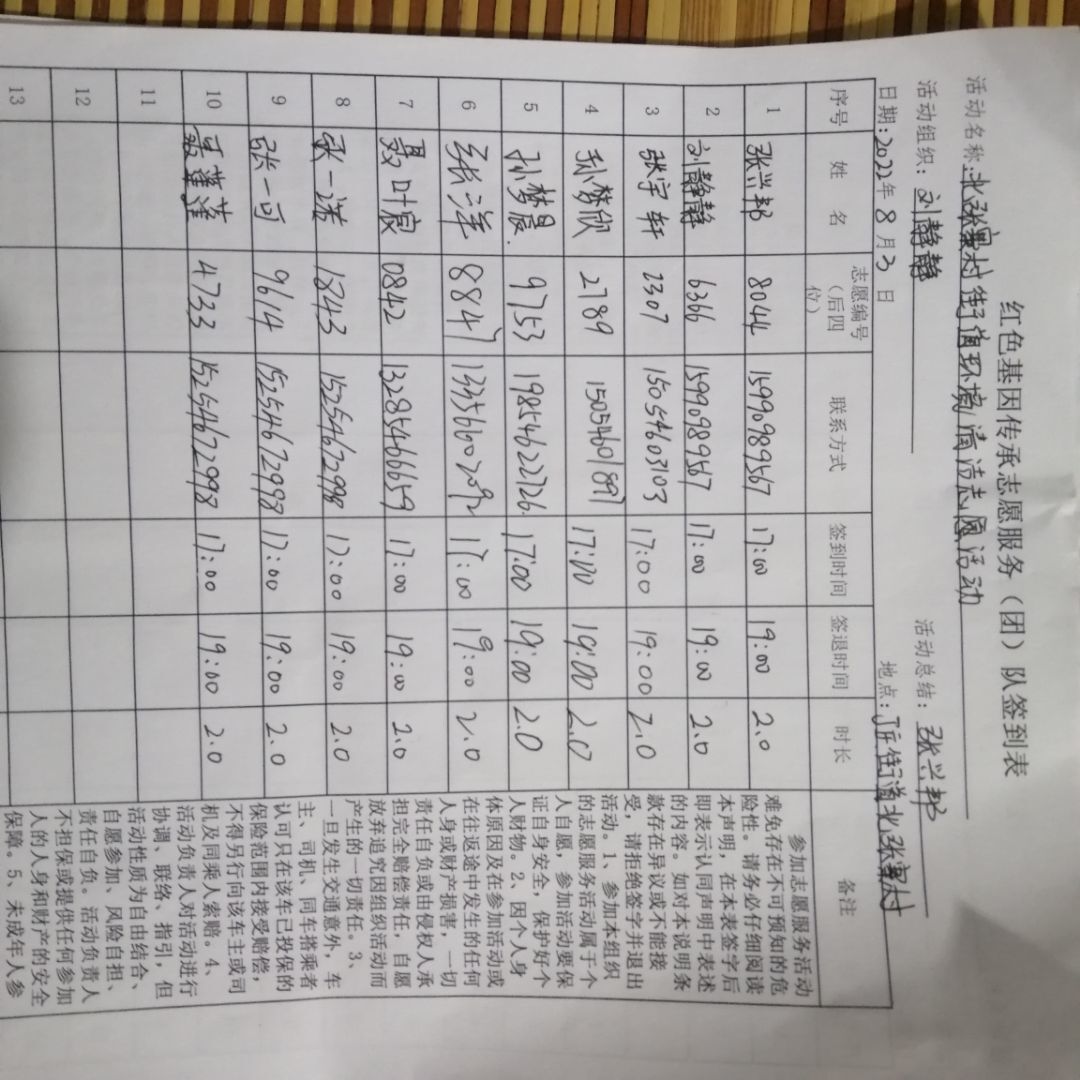 红色基因传承志愿服务（团）队签到表
活动名称:北张寨村街道环境清洁志愿活动
活动组织: 刘静静 活动总结: 张兴邦
日期:2022年8月3日 地点: 街道北张寨村
序号 姓 名 志愿编号（后四位） 联系方式 签到时间 签退时间 时长 备注
1 张兴邦 8044 15990989567 17:00 19:00 2.0
2 刘静静 6366 15990989567 17:00 19:00 2.0
3 张宇轩 2307 15054603103 17:00 19:00 2.0
4 孙梦欣 2789 15054601897 17:00 19:00 2.0
5 孙梦晨 9753 19854622726 17:00 19:00 2.0
6 张洋 8847 13356600292 17:00 19:00 2.0
7 聂叶宸 0842 13285466659 17:00 19:00 2.0
8 张一诺 1843 15254672998 17:00 19:00 2.0
9 张一可 9614 15254672998 17:00 19:00 2.0
10 聂莲莲 4733 15254672998 17:00 19:00 2.0
11
12
13
参加志愿服务活动
难免存在不可预知的危
险性。请务必仔细阅读
本声明，在本表签字后
即表示认同声明中表述
的内容。如对本说明条
款存在异议或不能接
受，请拒绝签字并退出
活动。1、参加本组织
的志愿服务活动属于个
人自愿，参加活动要保
证自身安全，保护好个
人财物。2、因个人身
体原因及在参加活动或
在往返途中发生的任何
人身或财产损害，一切
责任自负或由侵权人承
担完全赔偿责任，自愿
放弃追究因组织活动而
产生的一切责任。3、
一旦发生交通意外，车
主、司机、同车搭乘者
认可只在该车已投保的
保险范围内接受赔偿，
不得另行向该车主或司
机及同乘人索赔。4、
活动负责人对活动进行
协调、联络、指引，但
活动性质为自由结合、
自愿参加、风险自担、
责任自负。活动负责人
不担保或提供任何参加
人的人身和财产的安全
保障。5、未成年人参